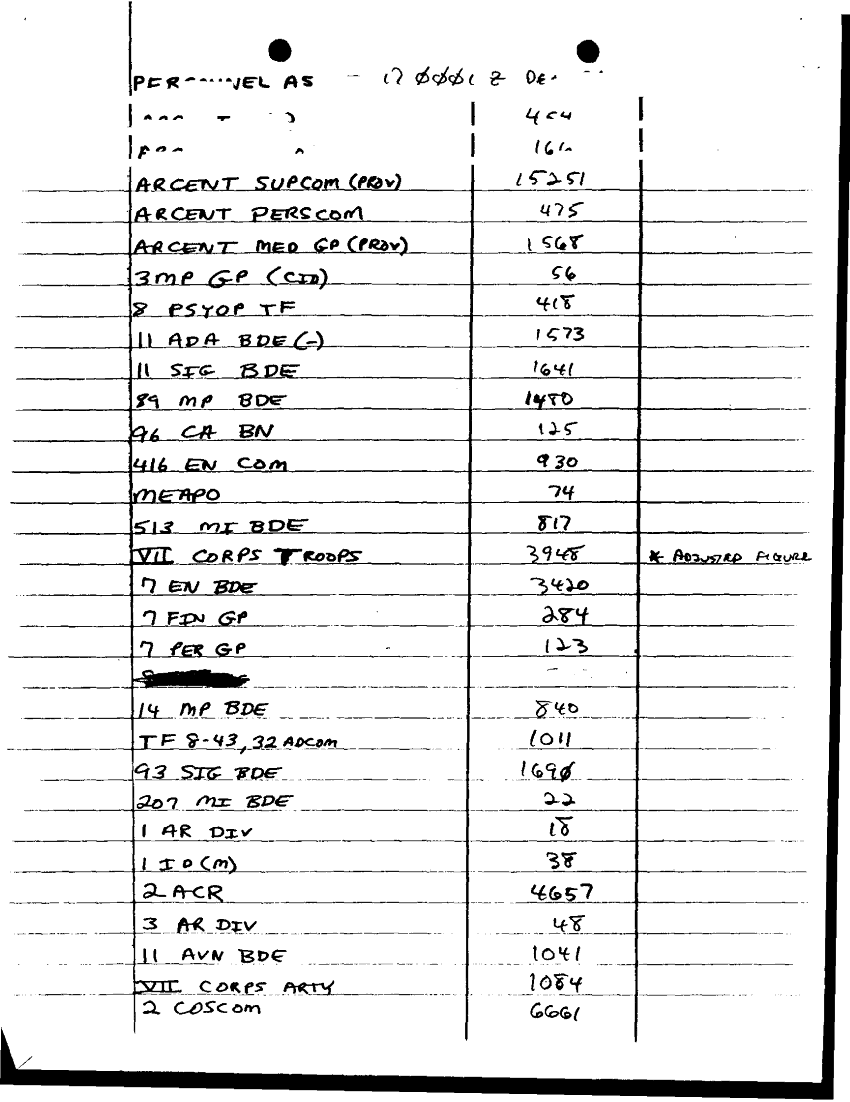 PERSONNEL AS
ARCENT SUPCOM (PROV) 15251
ARCENT PERSCOM 475
ARCENT MED GP (PROV) 1568
3 MP GP (CID) 56
8 PSYOP TF 418
11 ADA BDE (-) 1573
11 SIG BDE 1641
89 MP BDE 1480
96 CA BN 125
416 EN COM 930
MEAPO 74
513 MI BDE 817
VII CORPS TROOPS 3948 * ADJUSTED FIGURE
7 EN BDE 3420
7 FIN GP 284
7 PER GP 123
14 MP BDE 840
TF 8-43, 32 ADCOM 1011
93 SIG BDE 1690
207 MI BDE 22
1 AR DIV 18
1 ID (M) 38
2 ACR 4657
3 AR DIV 48
11 AVN BDE 1041
VII CORPS ARTY 1084
2 COSCOM 6661